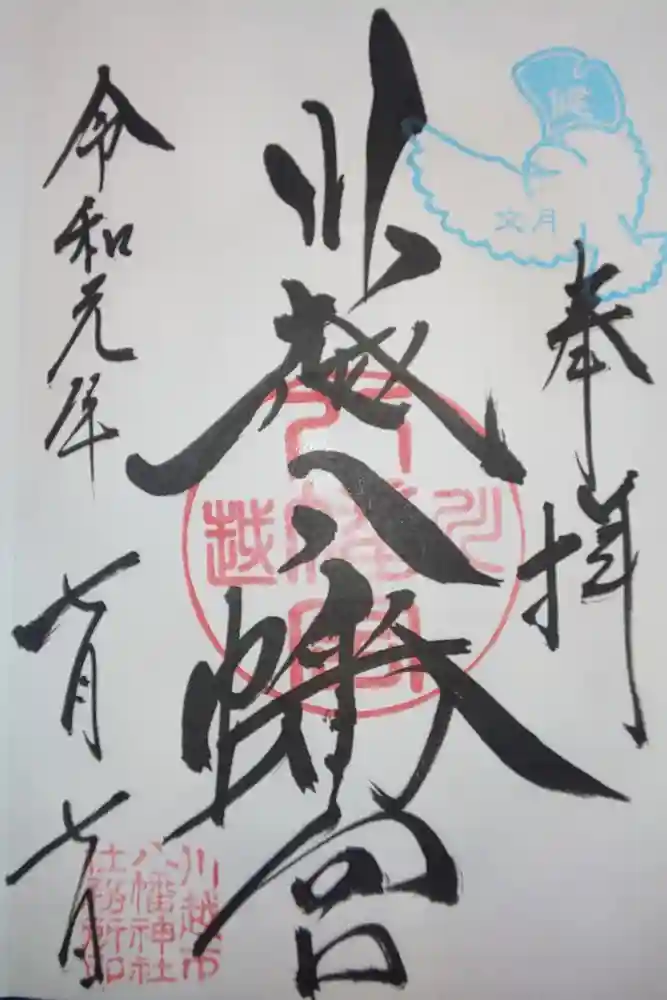 奉拝
川越八幡宮
令和元年
七月七日
文月
川越
八幡宮
川越市
八幡神社
社務所印